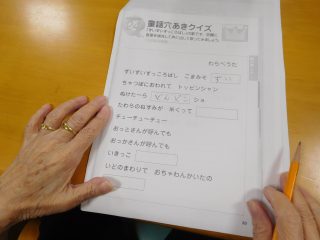 童謡穴あきクイズ
わらべうた
ずいずいずっころばし ごまみそ ずい
ちゃつぼにおわれて トッピンシャン
ぬけたーら どんどこ ショ
たわらのねずみが 米くって
チューチューチューチュー
おっとさんが呼んでも
おっかさんが呼んでも
いきっこ
いどのまわりで おちゃわんかいたの